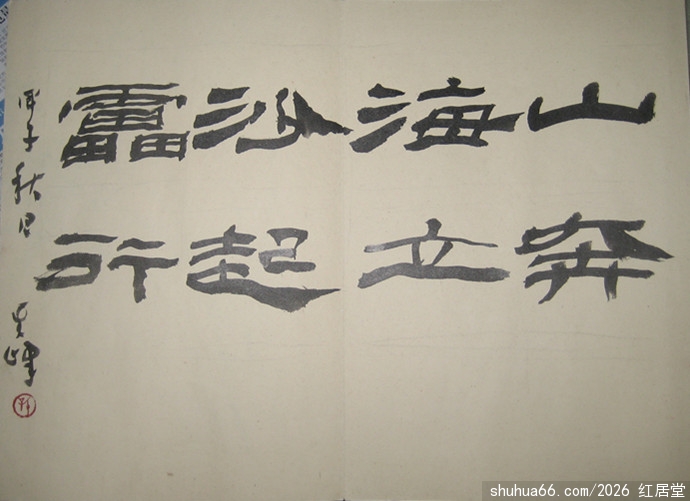 山奔
海立
沙起
靁行
子秋日
峰
shuhua66.com/2026 红居堂